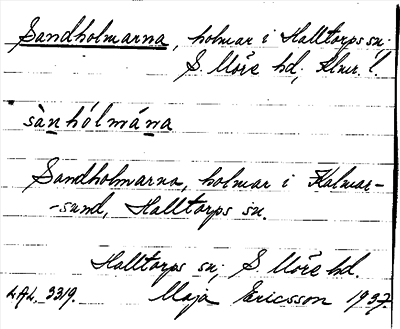 Sandholmarna, holmar i Halltorps sn;
S. Möre hd, Klmr. l.
sànhólmána
Sandholmarna, holmar i Kalmar-
-sund, Halltorps sn.
Halltorps sn; S. Möre hd.
LAL. 3319. Maja Ericsson 1937.